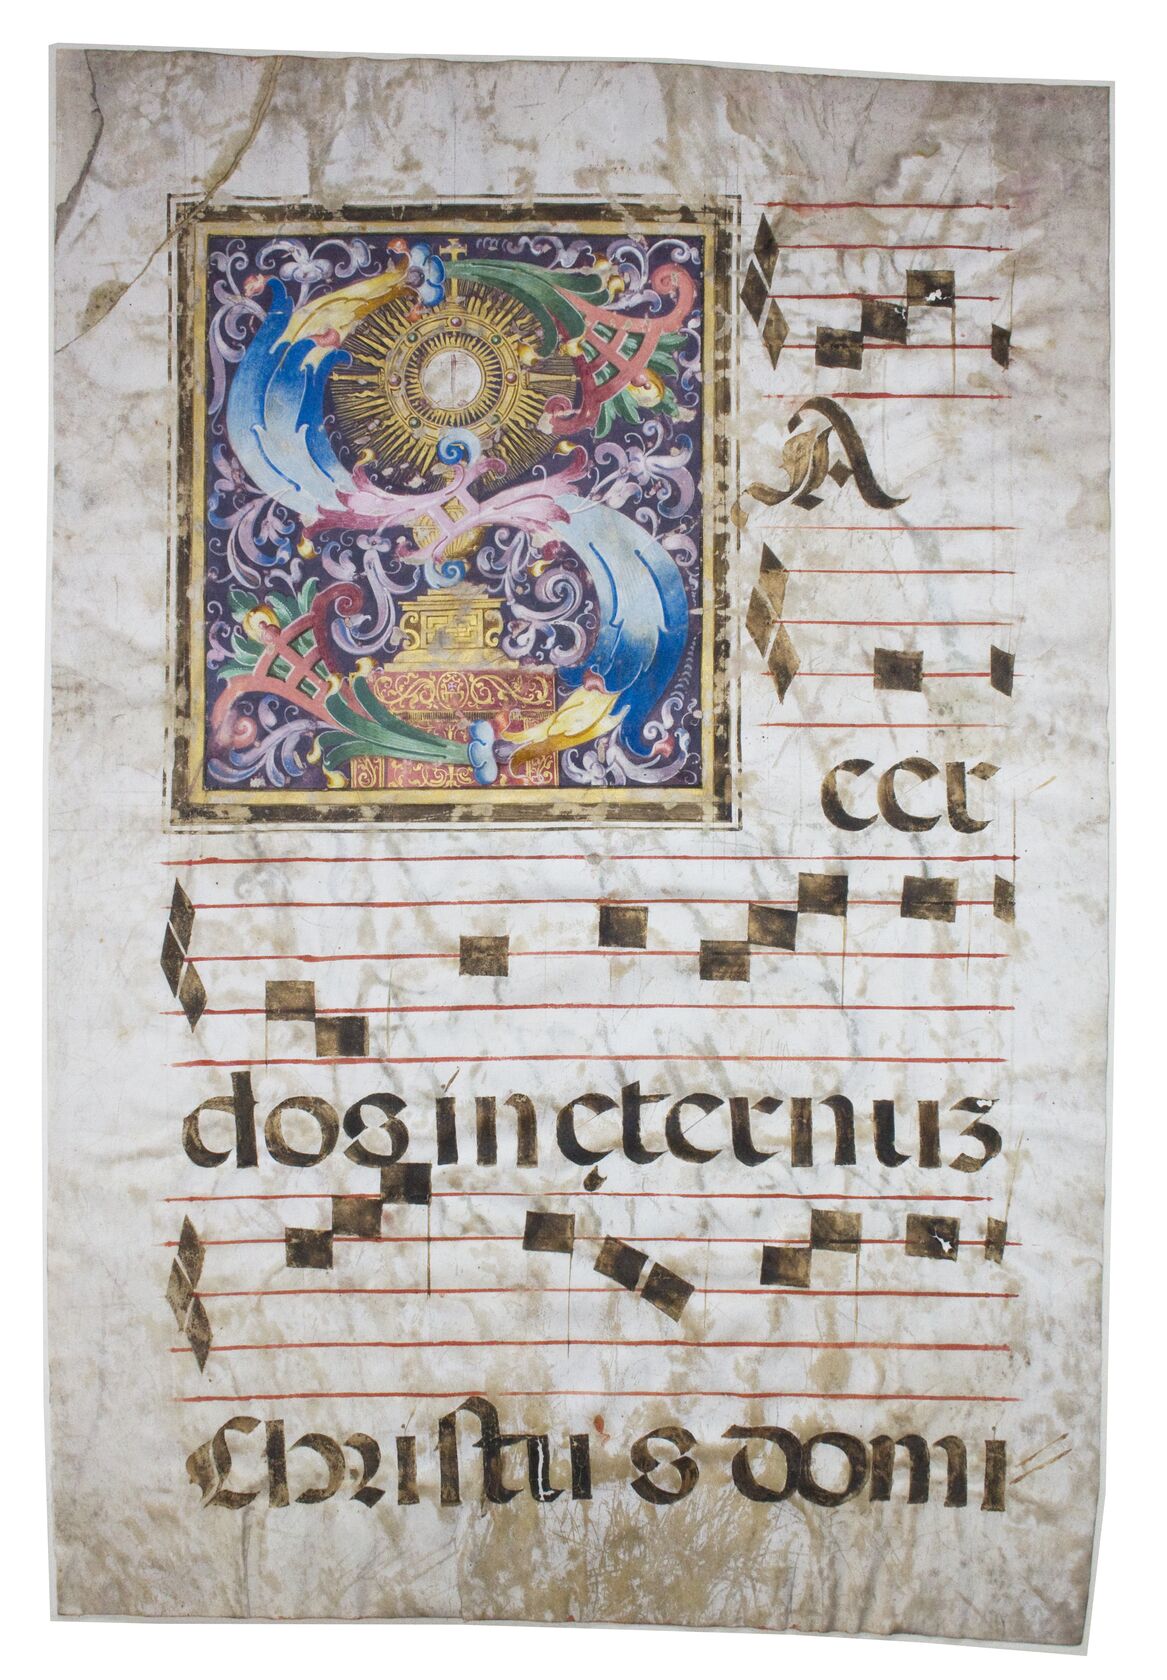 SA
cer
dos in ęternuʒ
Christus domi